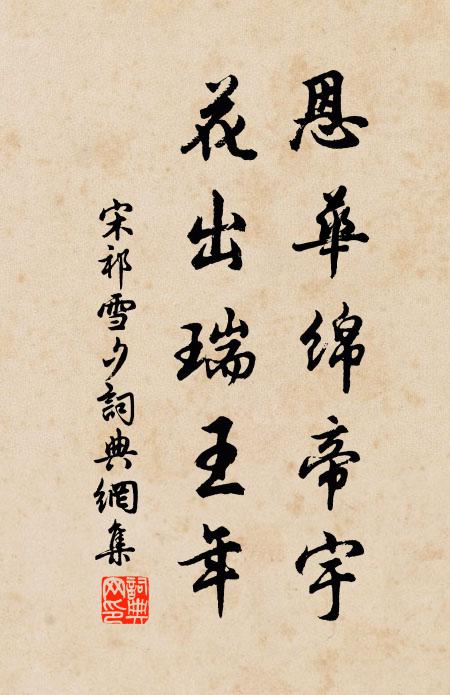 恩華綿帝宇
花出瑞王年
宋祁雪夕詞典網集
詞典網印